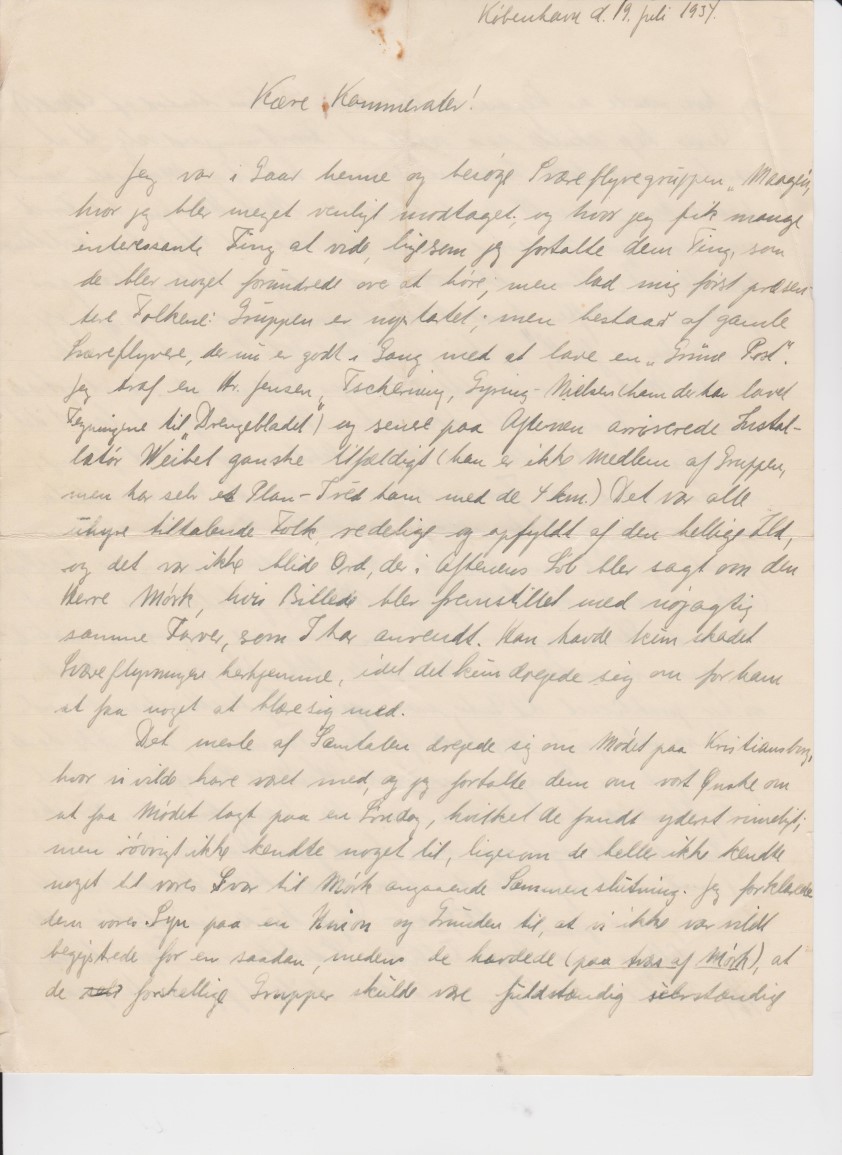 København d. 19. juli 1934.
Kære Kammerater!
Jeg var i Gaar henne og besøge Svæveflyvegruppen „Maagen,
hvor jeg blev meget venligt modtaget, og hvor jeg fik mange
interessante Ting at vide, ligesom jeg fortalte dem Ting, som
de blev noget forundrede over at høre; men lad mig først præsen-
tere Folkene: Gruppen er nystartet; men bestaar af gamle
Svæveflyvere, der nu er godt i Gang med at lave en „Grüne Post".
Jeg traf en Hr. Jensen, Tscherning, Gyring-Nielsen (ham der har lavet
Tegningene til „Drengebladet") og senere paa Aftenen arriverede Instal-
latør Weibel ganske tilfældigt (han er ikke Medlem af Gruppen,
men har selv et Plan - I véd ham med de 4 km.) Det var alle
uhyre tiltalende Folk, redelige og opfyldt af den hellige Ild,
og det var ikke blide Ord, der i Aftenens Løb blev sagt om den
Herre Mörk, hvis Billede blev fremstillet med nøjagtig
samme Farver, som I har anvendt. Han havde kun skadet
Svæveflyvningen herhjemme, idet det kun drejede sig om for ham
at faa noget at blære sig med.
Det meste af Samtalen drejede sig om Mødet paa Kristiansborg,
hvor vi vilde have været med, og jeg fortalte dem om vort Ønske om
at faa Mødet lagt paa en Søndag, hvilket de fandt yderst rimeligt;
men iøvrigt ikke kendte noget til, ligesom de heller ikke kendte
noget til vores Svar til Mörk angaaende Sammenslutning. Jeg forklarede
dem vores Syn paa en Union og Grunden til, at vi ikke var vildt
begejstrede for en saadan, medens de hævdede (paa af Mörk), at
de forskellige Grupper skulde være fuldstændig selvstændige